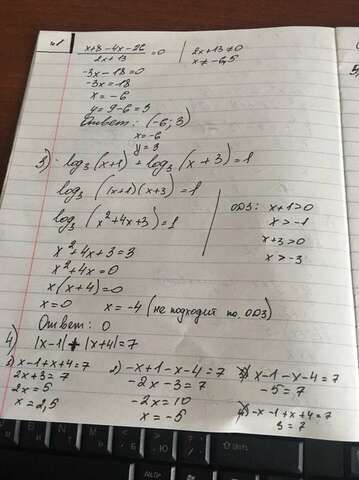 №1
x+8-4x-26 / 2x+13 = 0 | 2x+13≠0
-3x-18=0 x≠-6,5
-3x=18
x=-6
y=9-6=3
Ответ: (-6; 3)
x=-6
y=3
3) log₃(x+1) + log₃(x+3)=1
log₃((x+1)(x+3))=1 ОДЗ: x+1>0
log₃(x²+4x+3)=1 x>-1
x²+4x+3=3 x+3>0
x²+4x=0 x>-3
x(x+4)=0
x=0 x=-4 (не подходит по ОДЗ)
Ответ: 0
4) |x-1|+|x+4|=7
1) x-1+x+4=7 2) -x+1-x-4=7 3) x-1-x-4=7
2x+3=7 -2x-3=7 -5=7
2x=5 -2x=10 4) -x-1+x+4=7
x=2,5 x=-5 3=7
Alt